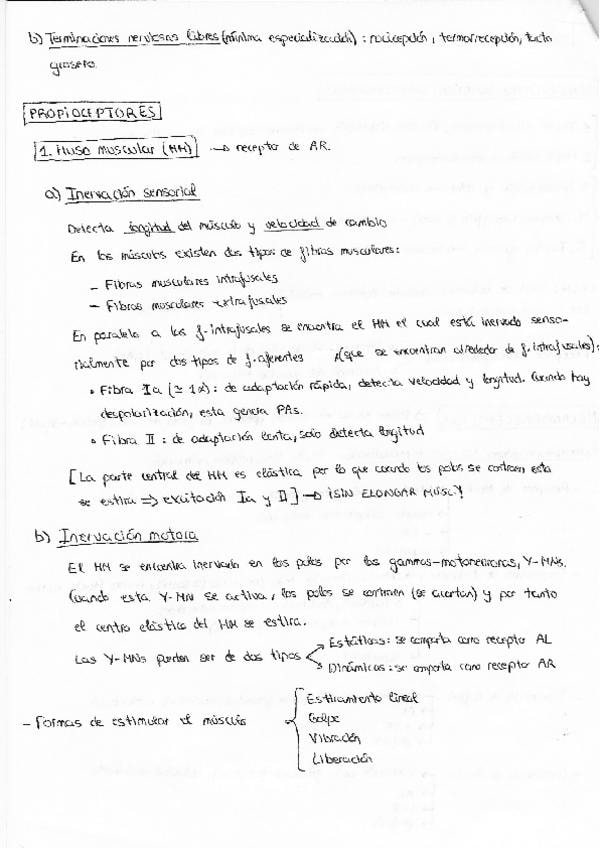 b) Terminaciones nerviosas libres (mínima especialización) : nocicepción, termorrecepción, tacto
grosero.
PROPIOCEPTORES
1. Huso muscular (HM) → receptor de AR.
a) Inervación sensorial
Detecta longitud del músculo y velocidad de cambio
En los músculos existen dos tipos de fibras musculares:
- Fibras musculares intrafusales
- Fibras musculares extrafusales
En paralelo a las f. intrafusales se encuentra el HM el cual está inervado senso-
rialmente por dos tipos de f. aferentes (que se encuentran alrededor de f. intrafusales):
• Fibra Ia (≃ 1x): de adaptación rápida, detecta velocidad y longitud. Cuando hay
despolarización, esta genera PAs.
• Fibra II : de adaptación lenta, solo detecta longitud
[La parte central del HM es elástica por lo que cuando los polos se contraen esta
se estira ⇒ excitación Ia y II] → ¡SIN ELONGAR MÚSC!
b) Inervación motora
El HM se encuentra inervado en los polos por las gammas-motoneuronas, γ-MNs.
Cuando esta γ-MN se activa, los polos se contraen (se acortan) y por tanto
el centro elástico del HM se estira.
Las γ-MNs pueden ser de dos tipos
Estáticas: se comporta como receptor AL
Dinámicas: se comporta como receptor AR
- Formas de estimular el músculo
Estiramiento lineal
Golpe
Vibración
Liberación